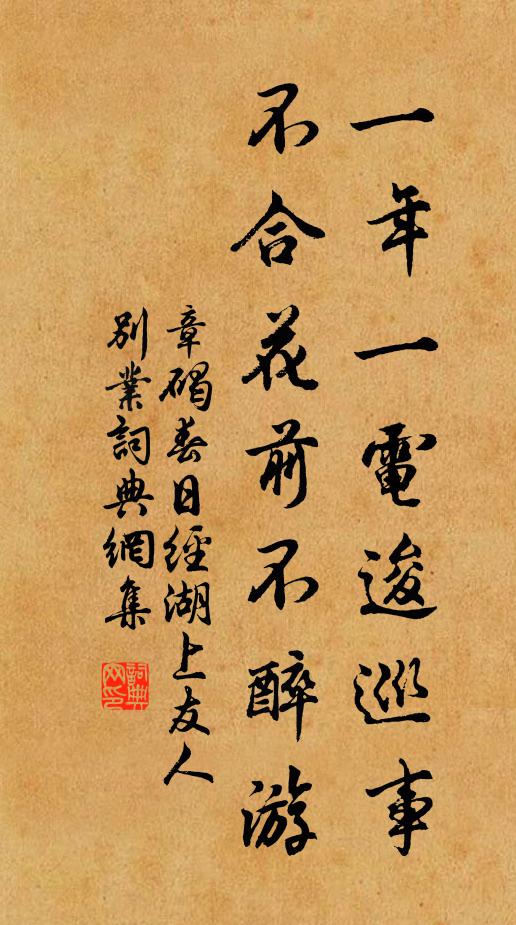 一年一電逡巡事
不合花前不醉游
章碣春日經湖上友人
別業詞典網集
詞典網印